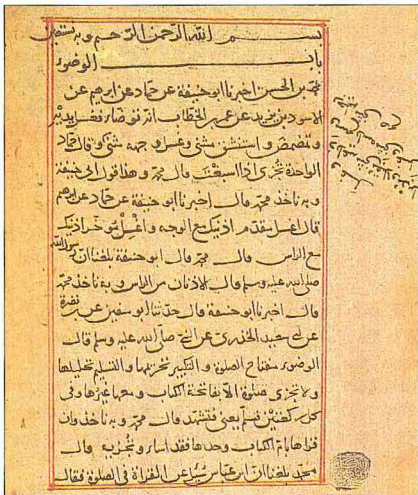 بسم الله الرحمن الرحيم وبه نستعين
باب الوضوء
محمد بن الحسن اخبرنا ابو حنيفة عن حماد عن ابرهيم عن
الاسود بن يزيد عن عمر بن الخطاب انه توضاء فغسل يديه
وتمضمض واستنشق مثنى وغسل وجهه مثنى وقال حماد
الواحدة تجزى اذا اسبغت قال محمد وهذا قول ابى حنيفة
وبه ناخذ محمد قال اخبرنا ابو حنيفة عن حماد عن ابرهيم
قال اغسل مقدم اذنيك مع الوجه وامسح مؤخر اذنيك
مع الراس قال محمد قال ابو حنيفة بلغنا ان رسول الله
صلى الله عليه وسلم قال الاذنان من الراس وبه ناخذ محمد
قال اخبرنا ابو حنيفة قال حدثنا ابو سفين عن ابى نضرة
عن ابى سعيد الخدرى عن النبى صلى الله عليه وسلم قال
الوضوء مفتاح الصلوة والتكبير تحريمها والتسليم تحليلها
ولا تجزى صلوة الا بفاتحة الكتاب ومعها غيرها وفى
كل ركعتين فسلم يعنى فتشهد قال محمد وبه ناخذ وان
قراها بام الكتاب وحدها فقد اساء وتجزيه قال
محمد بلغنا ان ابن عباس سئل عن القراة فى الصلوة فقال